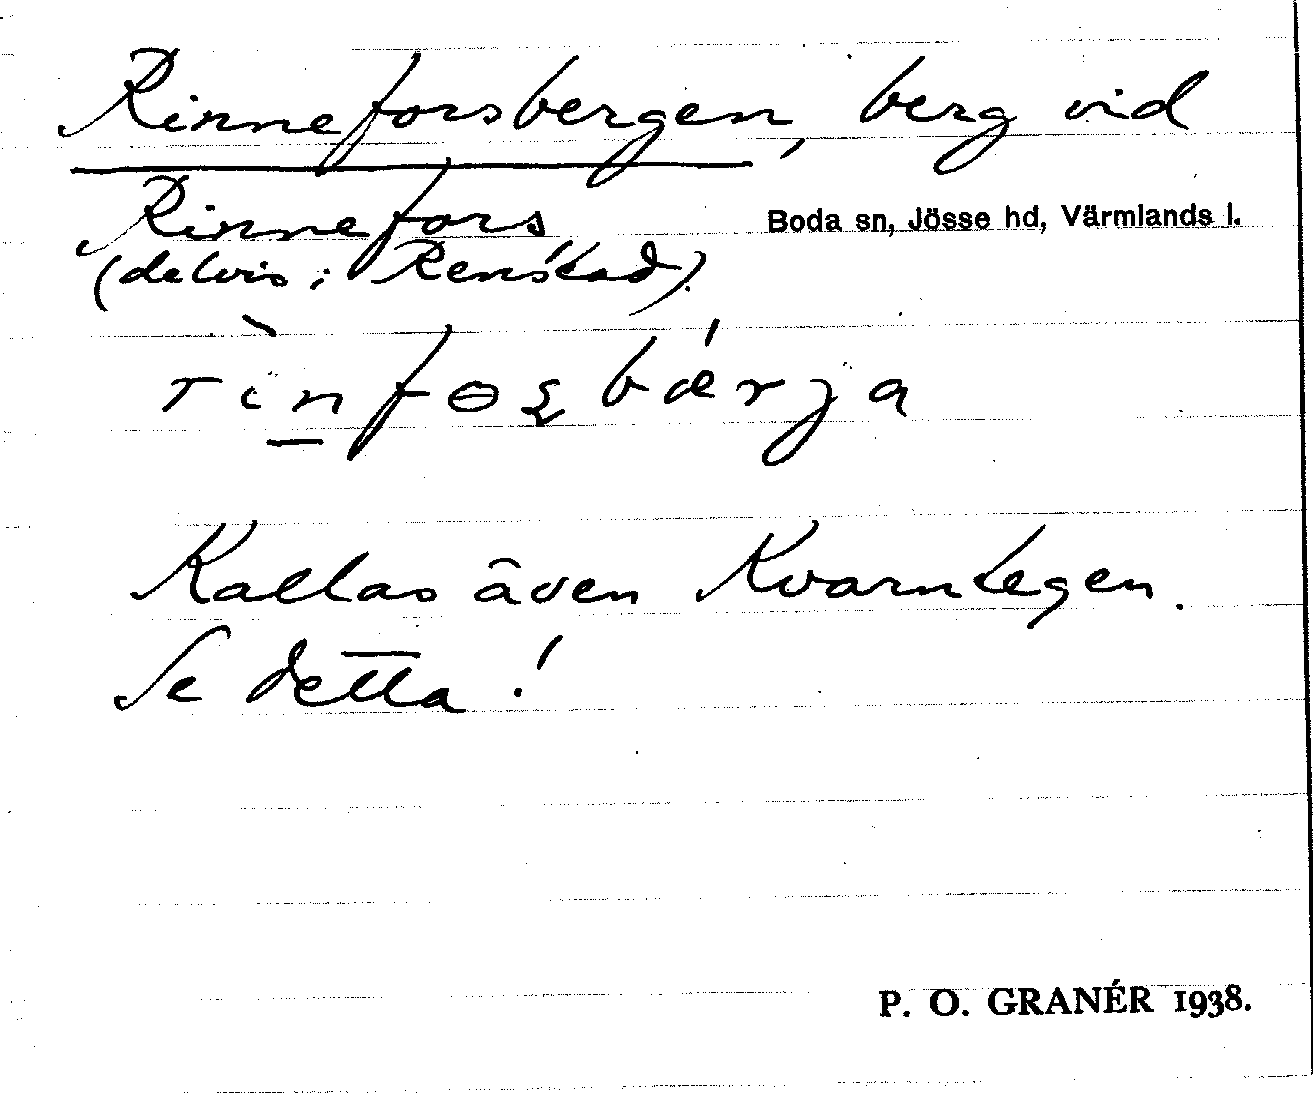 Rinneforsbergen, berg vid
Rinnefors
Boda sn, Jösse hd, Värmlands l.
(delvis i Renstad).
rìn̲fɵʂbǽrja
Kallas även Kvarntegen.
Se detta!
P. O. GRANÉR 1938.